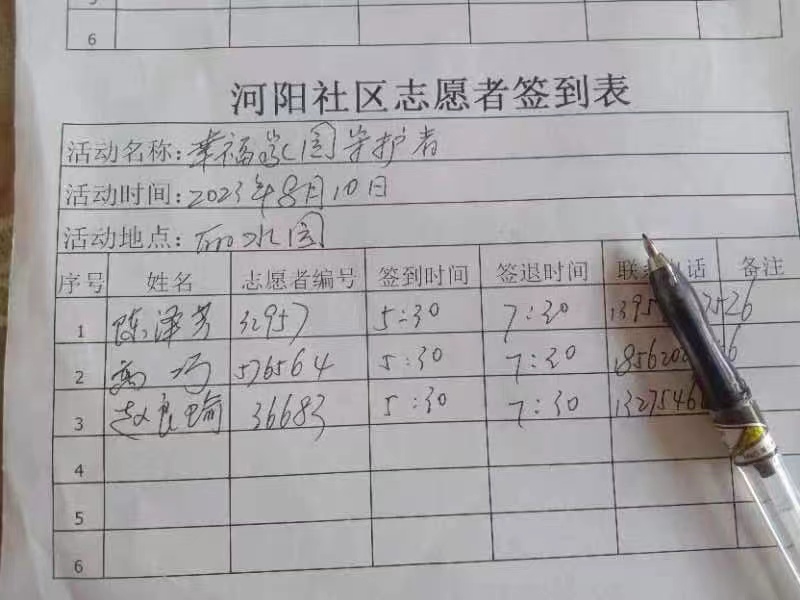 6
河阳社区志愿者签到表
活动名称：幸福家园守护者
活动时间：2023年8月10日
活动地点：丽水园
序号 姓名 志愿者编号 签到时间 签退时间 联 话 备注
1 陈泽芳 32957 5:30 7:30 1395 2526
2 高巧 576564 5:30 7:30 1856202 6
3 赵良瑜 36683 5:30 7:30 1327546
4
5
6